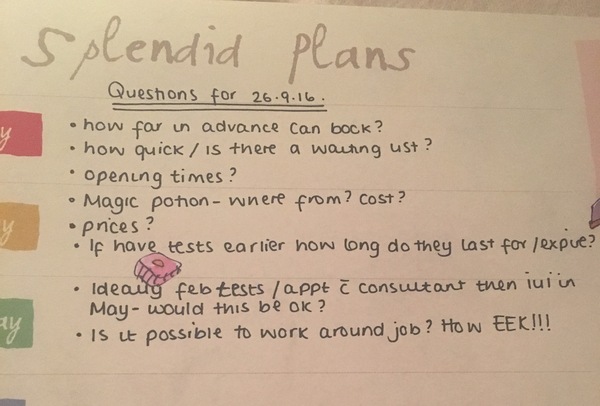 Splendid plans
Questions for 26.9.16.
• how far in advance can book?
• how quick / is there a waiting list?
• opening times?
• Magic potion - where from? cost?
• prices?
• If have tests earlier how long do they last for /expire?
• Ideally feb tests /appt c̄ consultant then iui in
May - would this be ok?
• Is it possible to work around job? How EEK!!!
y
y
ay